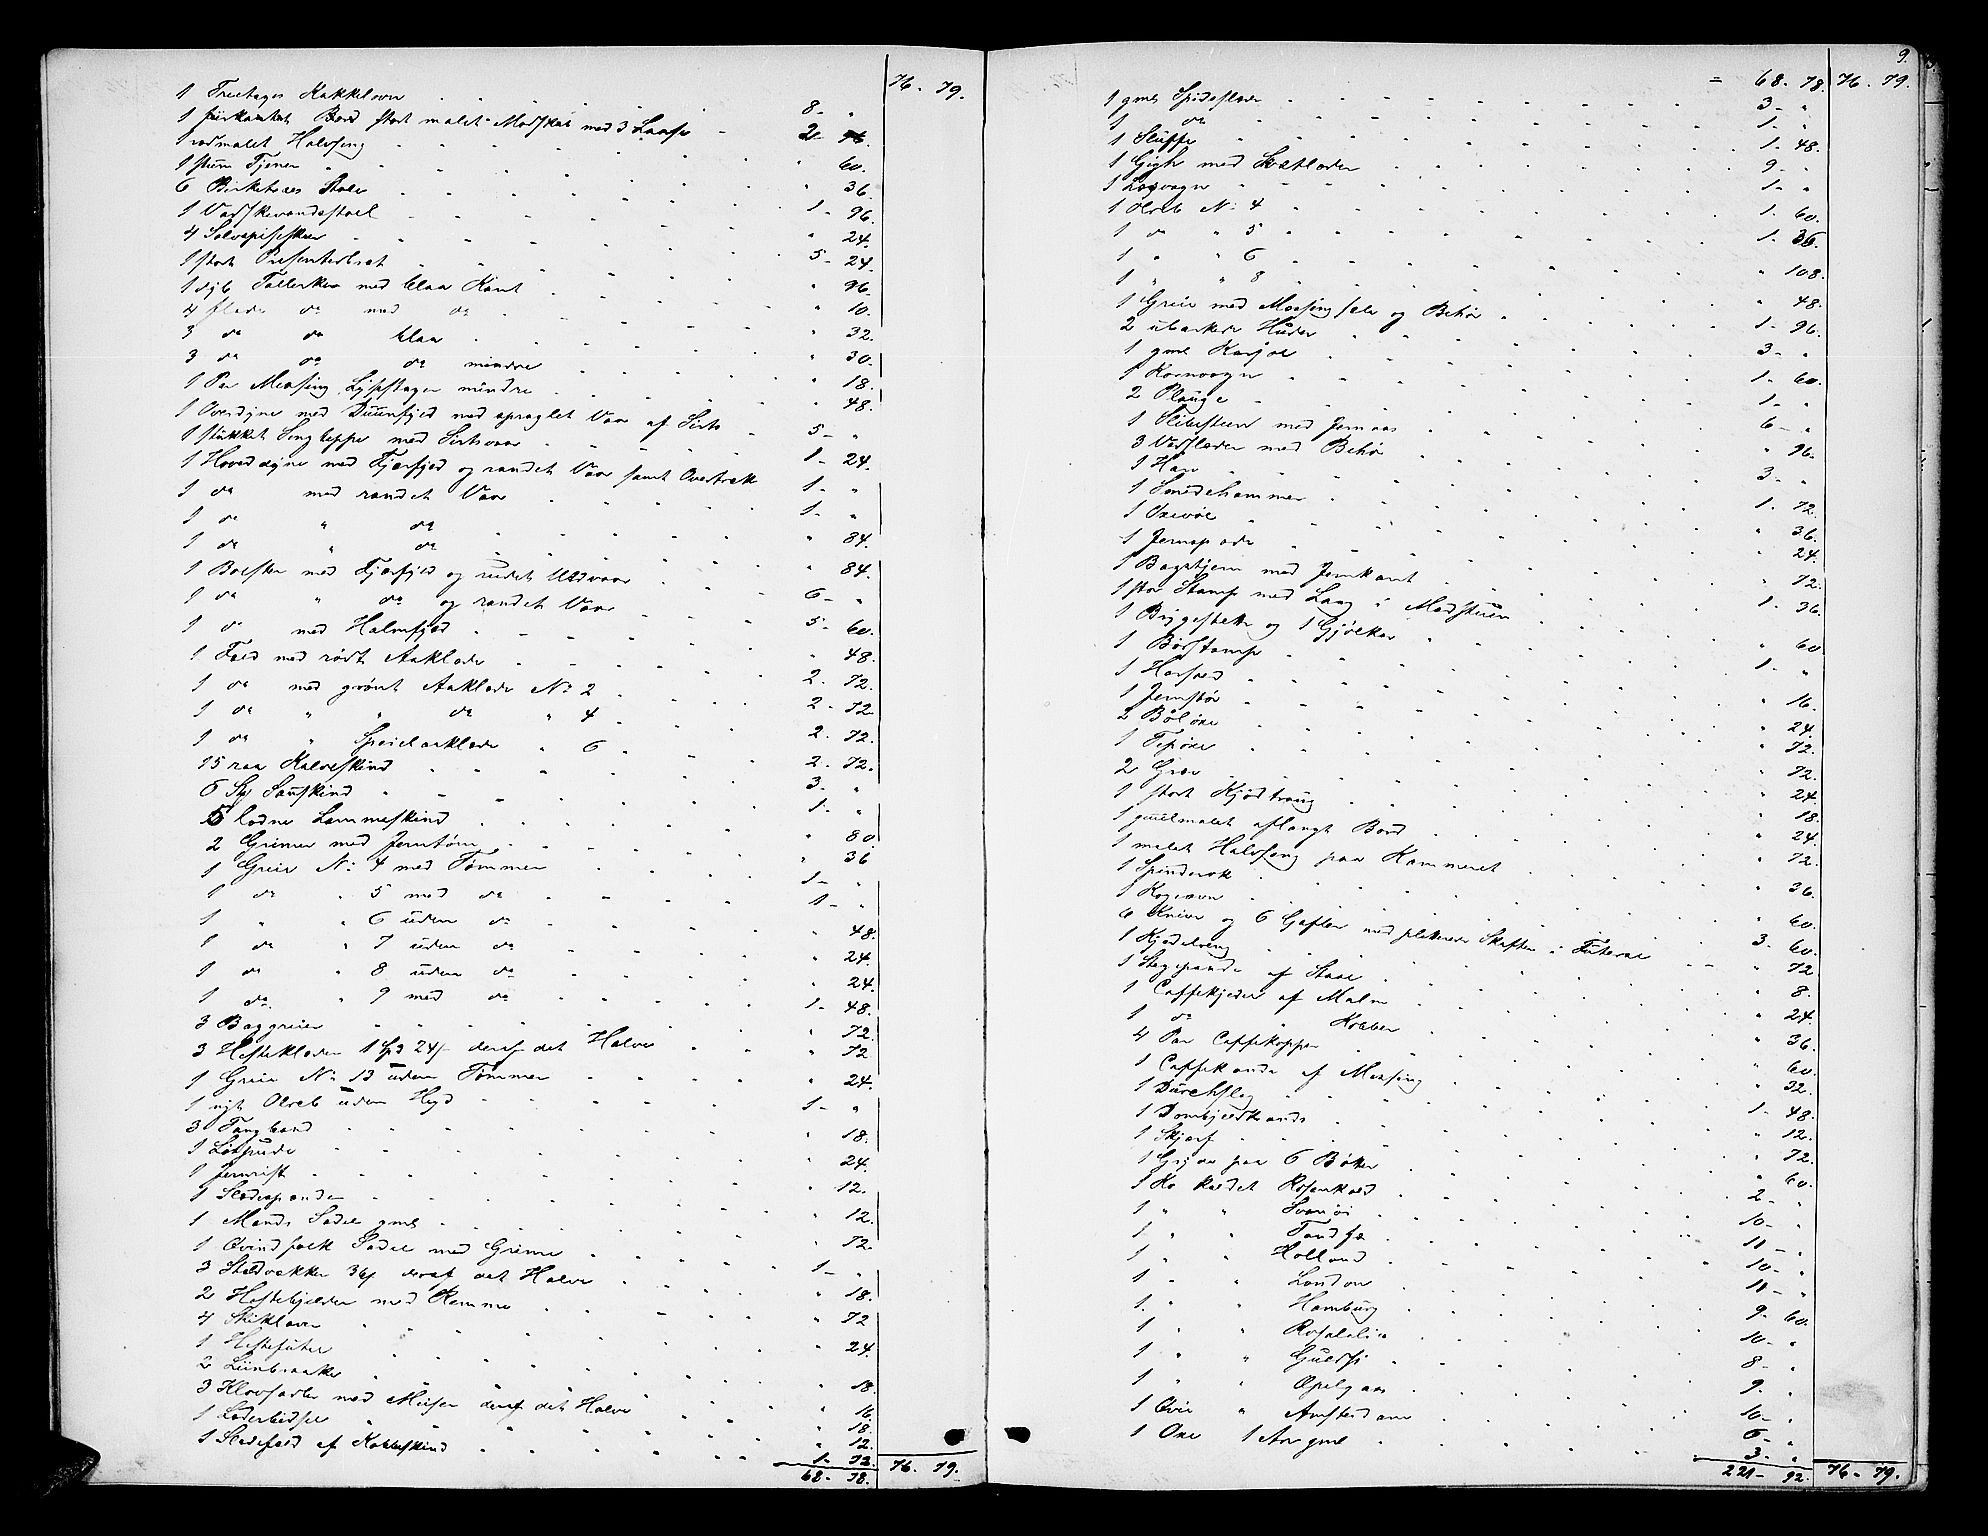 76 - 79.
1 Treetages Kakkelovn . . . 8 - "
1 firkantet Bord stort malet Madskab med 3 Laase - 2 - 46.
1 rødmalet Halvseng . . . " 60.
1 stum Tjener . . . " 36.
6 Birketræes Stole . . . 1 - 96.
1 Vadskevandsstoel . . . " 24.
4 Sølvspiseskeer . . . 5 - 24.
1 stort Presenterbret . . . " 96.
1 dyb Tallerken med blaa Kant . . . " 10.
4 flade do med do . . . " 32.
3 do do blaa . . . " 30.
3 do do do mindre . . . " 18.
1 Par Messing Lysestager mindre . . . " 48.
1 Overdyne med Duunfjed med spraglet Vaar af Sirts . 5 - "
1 stukket Sengteppe med Sirtsvaar . . . 1 - 24.
1 Hoveddyne med Fjærfjed og randet Vaar samt Overtræk 1 - "
1 do med randet Vaar . . . 1 - "
1 do " do . . . " 84.
1 do " do . . . " 84.
1 Bolster med Fjærfjed og rudet Uldvaar . . . 6 - "
1 do " do og randet Vaar . . . 5 - 60.
1 do med Halmfjed . . . " 48.
1 Feld med rødt Aaklæde . . . 2 - 72.
1 do med grønt Aaklæde No 2 . . . 2 - 72.
1 do " " do " 4 . . . 2 - 72.
1 do " Speielaaklæde " 6 . . . 2 - 72.
15 raa Kalveskind . . . 3 - "
6 Sk Sauskind . . . 1 - "
5 lodne Lammeskind . . . " 80.
2 Grimer med Jerntøm . . . " 36
1 Greie No 4 med Tømmer . . . 1 - "
1 do " 5 med do . . . 1 - "
1 " " 6 uden do . . . " 48.
1 do " 7 uden do . . . " 24.
1 do " 8 uden do . . . " 24.
1 do " 9 med do . . . 1 - 48.
3 Baggreier . . . " 72.
3 Hesteklokker 1 Spd 24 s deraf det Halve . . " 72
1 Greie No 13 uden Tømmer . . . " 24.
1 nyt Olreb uden Hegd . . . 1 - "
3 Tangbaand . . . " 18.
1 Løspude . . . " 24.
1 Jernrist . . . " 12.
1 Sledespande . . . " 12.
1 Mands Sadel gml . . . " 72.
1 Qvindfolk Sadel med Grime . . . 1 - "
3 36 s deraf det Halve . . . " 18.
2 Hestebjelder med Remme . . . " 72
4 . . . " 24.
1 . . .
2 Liinbraaker . . . " 18.
3 Kløvsadler med Meiser deraf det Halve . . . " 16
1 Læderbidsel . . . " 18.
1 Sledefeld af Kalveskind . . . " 12.
1 - 72.
68 - 78. 76 - 79.
9.
- 68. 78. 76 - 79.
1 gml Spidsslæde . . . 3 - "
1 do . . . 1 - "
1 Sluffe . . . 1 - 48.
1 Gigh med Skatlæder . . . 9 - "
1 Løsvogn . . . 1 - "
1 Olreb No 4 . . . 1 - 60.
1 do " 5 . . . 1 - 36.
1 " " 6 . . . " 108.
1 " " 8 . . . " 48.
1 Greie med Messing Sele og Behør . . . 1 - 96.
2 ubarkede Huder . . . 3 - "
1 gml Karjol . . . 1 - 60.
1 Kornvogn . . . 1 - "
2 Plouge . . . 6 - "
1 Slibesteen med Jernaas . . . " 96.
3 Vedslæder med Behør . . . 3 - "
1 Harv . . . 1 - 72.
1 Smedehammer . . . " 36.
1 . . . " 24.
1 Jernspade . . . " 72.
1 Bagehjem med Jernkant . . . 1 - 36.
1 stor Stamp med Laag i Madstuen . . .
1 Bryggebøtte og 1 Gjølkar . . . " 60
1 Børstamp . . . 1 - "
1 . . . " 16.
1 Jernstør . . . " 24.
2 Bøløxe . . . " 72.
1 . . . " 72.
2 Græv . . . " 24.
1 stort Kjødtraug . . . " 18.
1 guulmalet aflangt Bord . . . " 24.
1 malet Halvseng paa Kammeret . . . " 72.
1 Spinderok . . . " 36.
1 Kogeovn . . . " 60.
6 Knive og 6 Gafler med pletterede Skafter i Futeral - 3 - 60.
1 . . . " 72
1 Stegepande af Staal . . . " 8.
1 Caffekjedel af Malm . . . " 24.
1 do " Kobber . . . " 36.
4 Par Caffekopper . . . " 60.
1 Caffekande af Messing . . . " 32.
1 Durchslag . . . 1 - 48.
1 . . . " 12.
1 Skjerf . . . " 72.
1 Gryde paa 6 Bøtter . . . " 60.
1 Ko kaldet Rosenkold . . . 2 - "
1 " " Svanøi . . . 10 - "
1 " " . . . 11 - "
1 " " Holland . . . 10 - "
1 " " London . . . 11 - "
1 " " Hamburg . . . 9 - 60.
1 " " Rosalilie . . . 10 - "
1 " " . . . 8 - "
1 " " Apelgaas . . . 9 - "
1 Qvie " Amsterdam . . . 10 - "
1 Oxe 1 Aar gml . . . 6 - "
3 - "
221 - 92. 76 - 79.